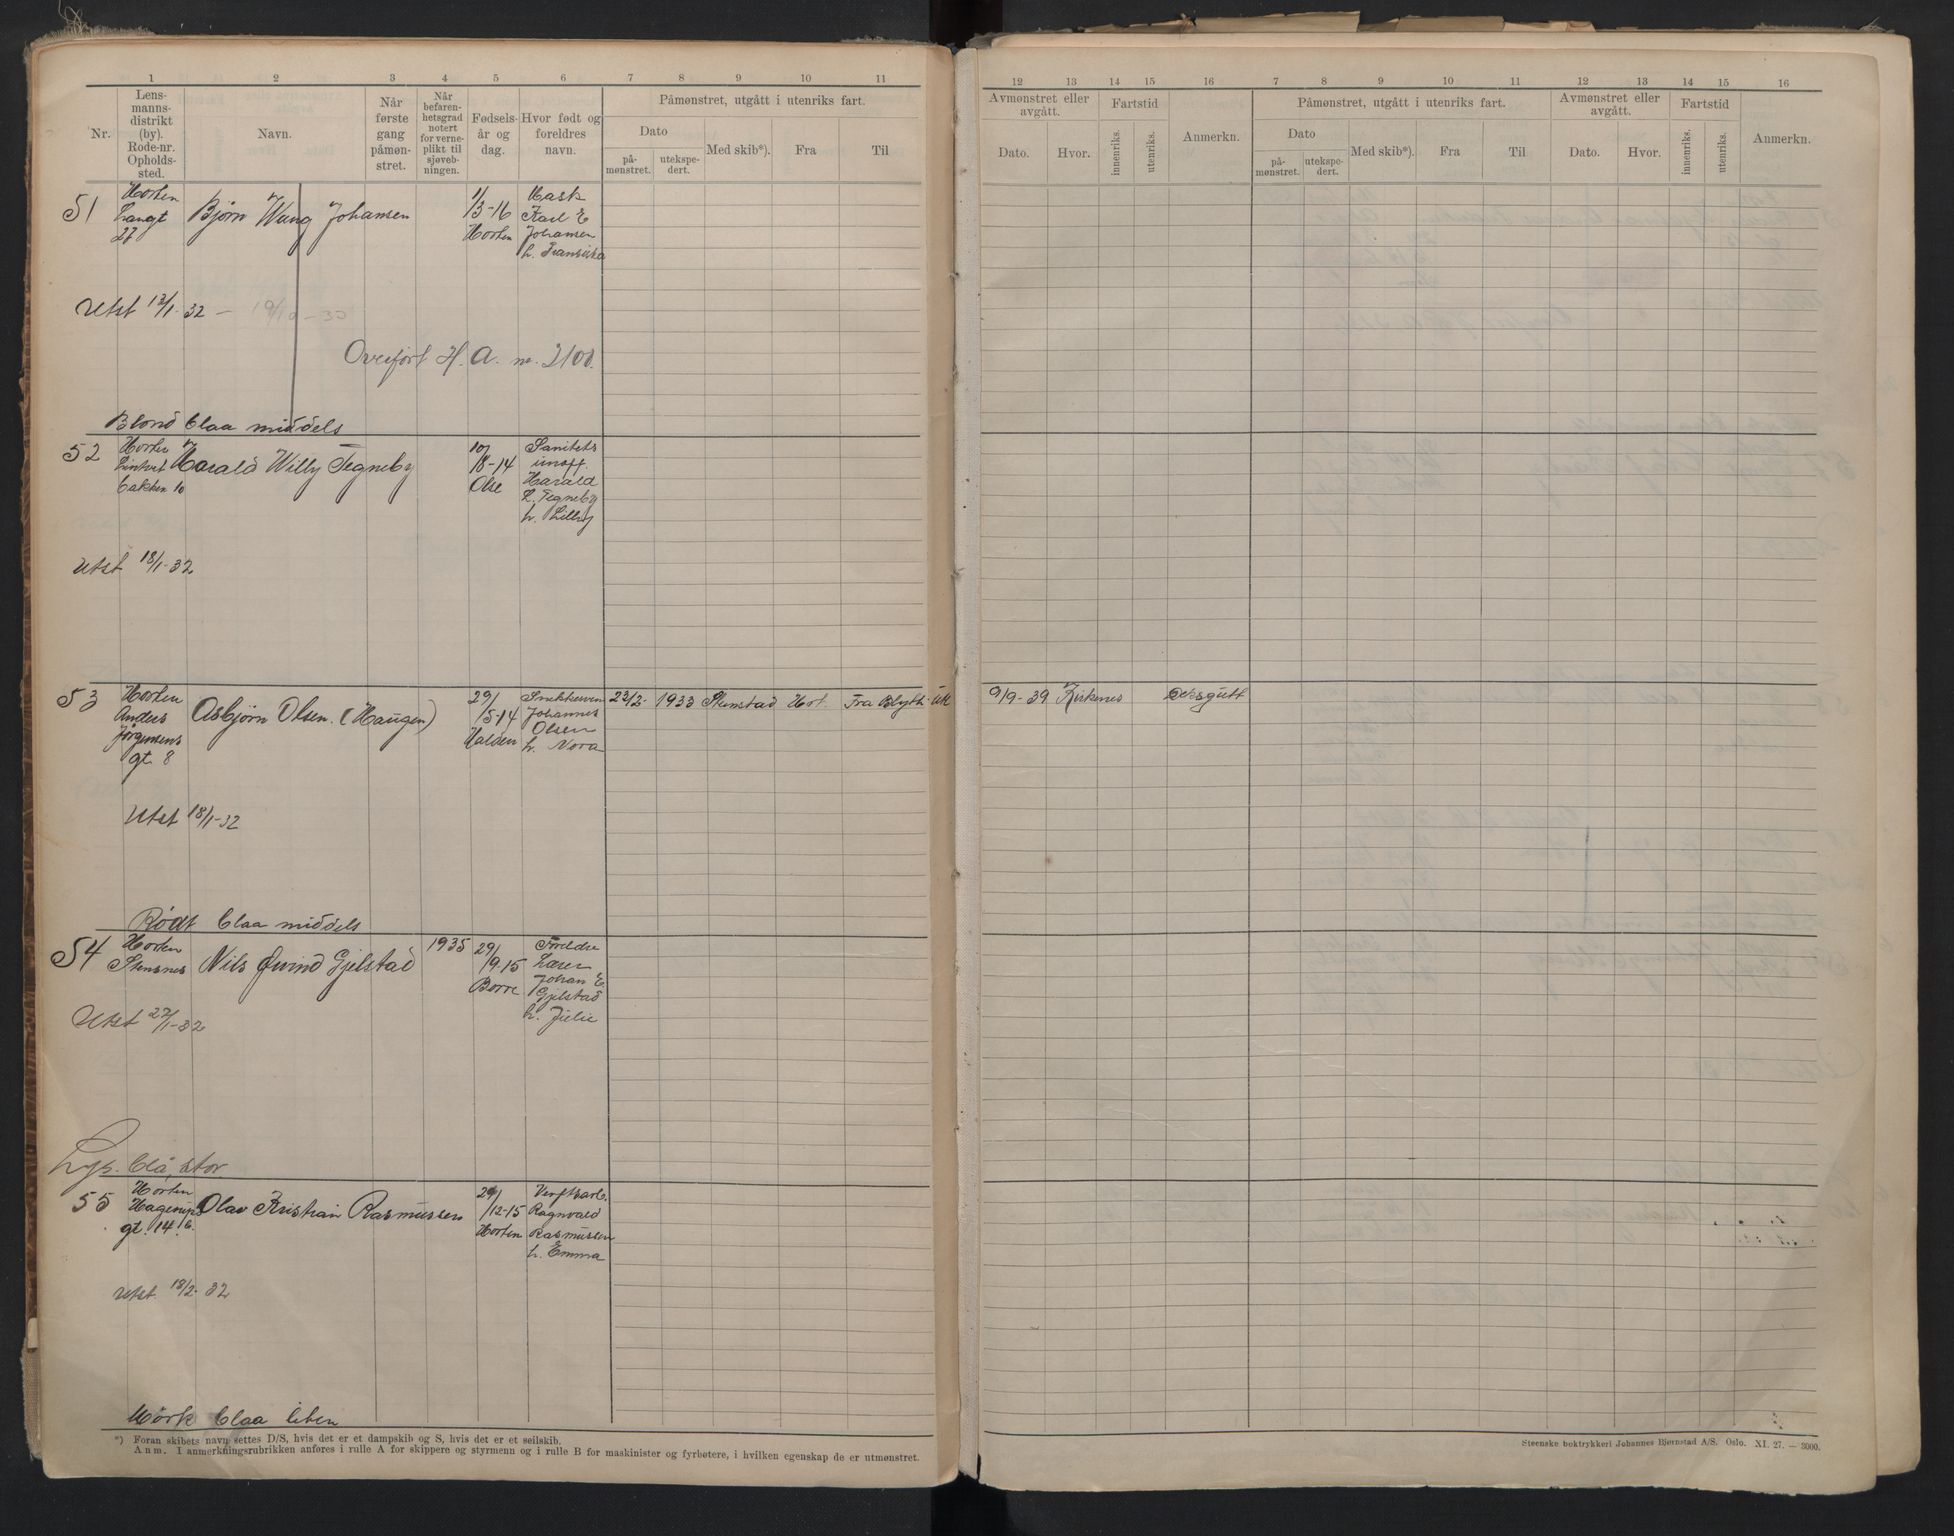 1 2 3 4 5 6 7 8 9 10 11
Nr.
Lens-
manns-
distrikt
(by).
Rode-nr.
Opholds-
sted.
Navn.
Når
første
gang
påmøn-
stret.
Når
befaren-
hetsgrad
notert
for verne-
plikt til
sjøveb-
ningen.
Fødsels-
år og
dag.
Hvor født og
foreldres
navn.
Påmønstret, utgått i utenriks fart.
Dato
på-
mønstret.
utekspe-
dert.
Med skib*).
Fra
Til
51
Horten
Langt
27
Bjørn Wang Johansen
1/3-16
Horten
Mask
Karl E
Johansen
h. Fransiska
Utst 12/1-32 — 19/10-33
Overført H. A. nr. 2100.
Blond Blaa middels
52
Horten
bakken 10
Harald Willy Tegneby
10/8-14
Sanitets
unoff.
Harald
L. Tegneby
h. Lilly
Utst 18/1-32
53
Horten
Anders
Jørgensens
gt. 8
Asbjørn Olsen. (Haugen)
29/5-14
Halden
Johannes
Olsen
h. Nora
23/2- 1933 Stenstad Hort. Fra Blyth
Utst 18/1-32
Rødt Blaa middels
54
Horten
Stensnes
Nils Øvind Gjelstad
1935
29/9-15
Borre
Foreldre
Lærer
Johan E.
Gjelstad
h. Julie
Utst 22/1-32
Lys. Blå, stor
55
Horten
Hagerups
gt. 14 b.
Olav Kristian Rasmussen
29/12-15
Horten
Verftsarb.
Ragnvald
Rasmussen
h. Emma
Utst. 18/2-32
Mörk Blaa liten
*) Foran skibets navn settes D/S, hvis det er et dampskib og S, hvis det er et seilskib.
Anm. I anmerkningsrubrikken anføres i rulle A for skippere og styrmenn og i rulle B for maskinister og fyrbøtere, i hvilken egenskap de er utmønstret.
12 13 14 15 16 7 8 9 10 11 12 13 14 15 16
Avmønstret eller
avgått.
Dato.
Hvor.
Fartstid
innenriks.
utenriks.
Anmerkn.
Påmønstret, utgått i utenriks fart.
Dato
på-
mønstret.
utekspe-
dert.
Med skib*).
Fra
Til
Avmønstret eller
avgått.
Dato.
Hvor.
Fartstid
innenriks.
utenriks.
Anmerkn.
9/9-39 Kirkenes Deksgutt
Steenske boktrykkeri Johannes Bjørnstad A/S. Oslo. XI. 27. — 3000.